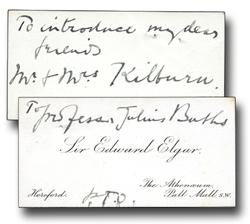 To introduce my dear
friends
Mr. & Mrs Kilburn.
To Professor Julius Buths
Sir Edward Elgar.
Hereford.
P.T.O.
The Athenæum,
Pall Mall S.W.